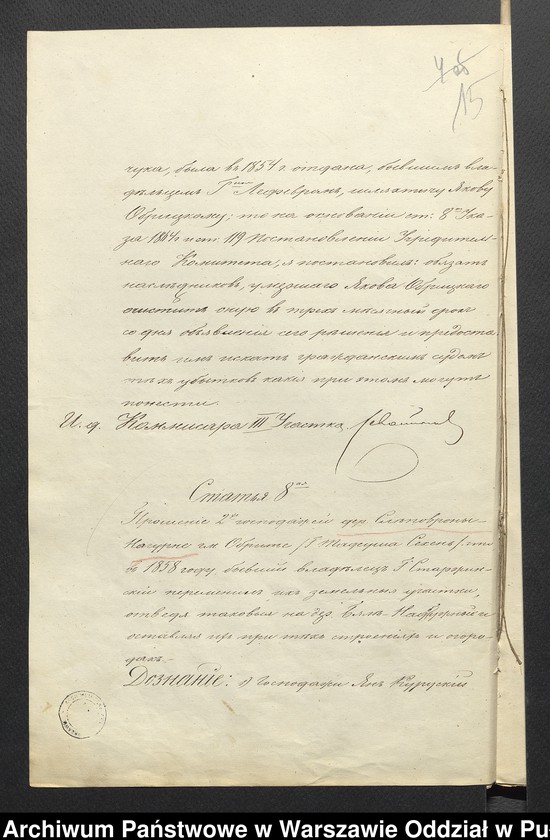 15
чука, была въ 1854 г. отдана, бывшимъ вла-
дѣльцемъ Лефевромъ, шляхтичу Якову
Обрицкому; то на основаніи ст: 8 Ука-
за 1864 и ст: 119 Постановленія Учредитель-
наго Комитета, я постановилъ: обязать
наслѣдниковъ, умершаго Якова Обрицкаго
очистить оную въ трехъ мѣсячный срокъ
со дня объявленія сего рѣшенія и предоста-
вить имъ искать гражданскимъ судомъ
тѣхъ убытковъ какіе при этомъ могутъ
понести.
И. д. Коммисара III Участка
Статья 8ая
Прошеніе 2хъ господарей дер.
Нагурне гм. Обрите / что
въ 1858 году бывшій владѣлецъ Г.
скій перемѣнилъ ихъ земельные участки,
отведя таковые на дер.
оставилъ ихъ при тѣхъ строеніяхъ и огоро-
дахъ.-
Дознаніе: 1) Господари Янъ
Archiwum Państwowe w Warszawie Oddział w Pu